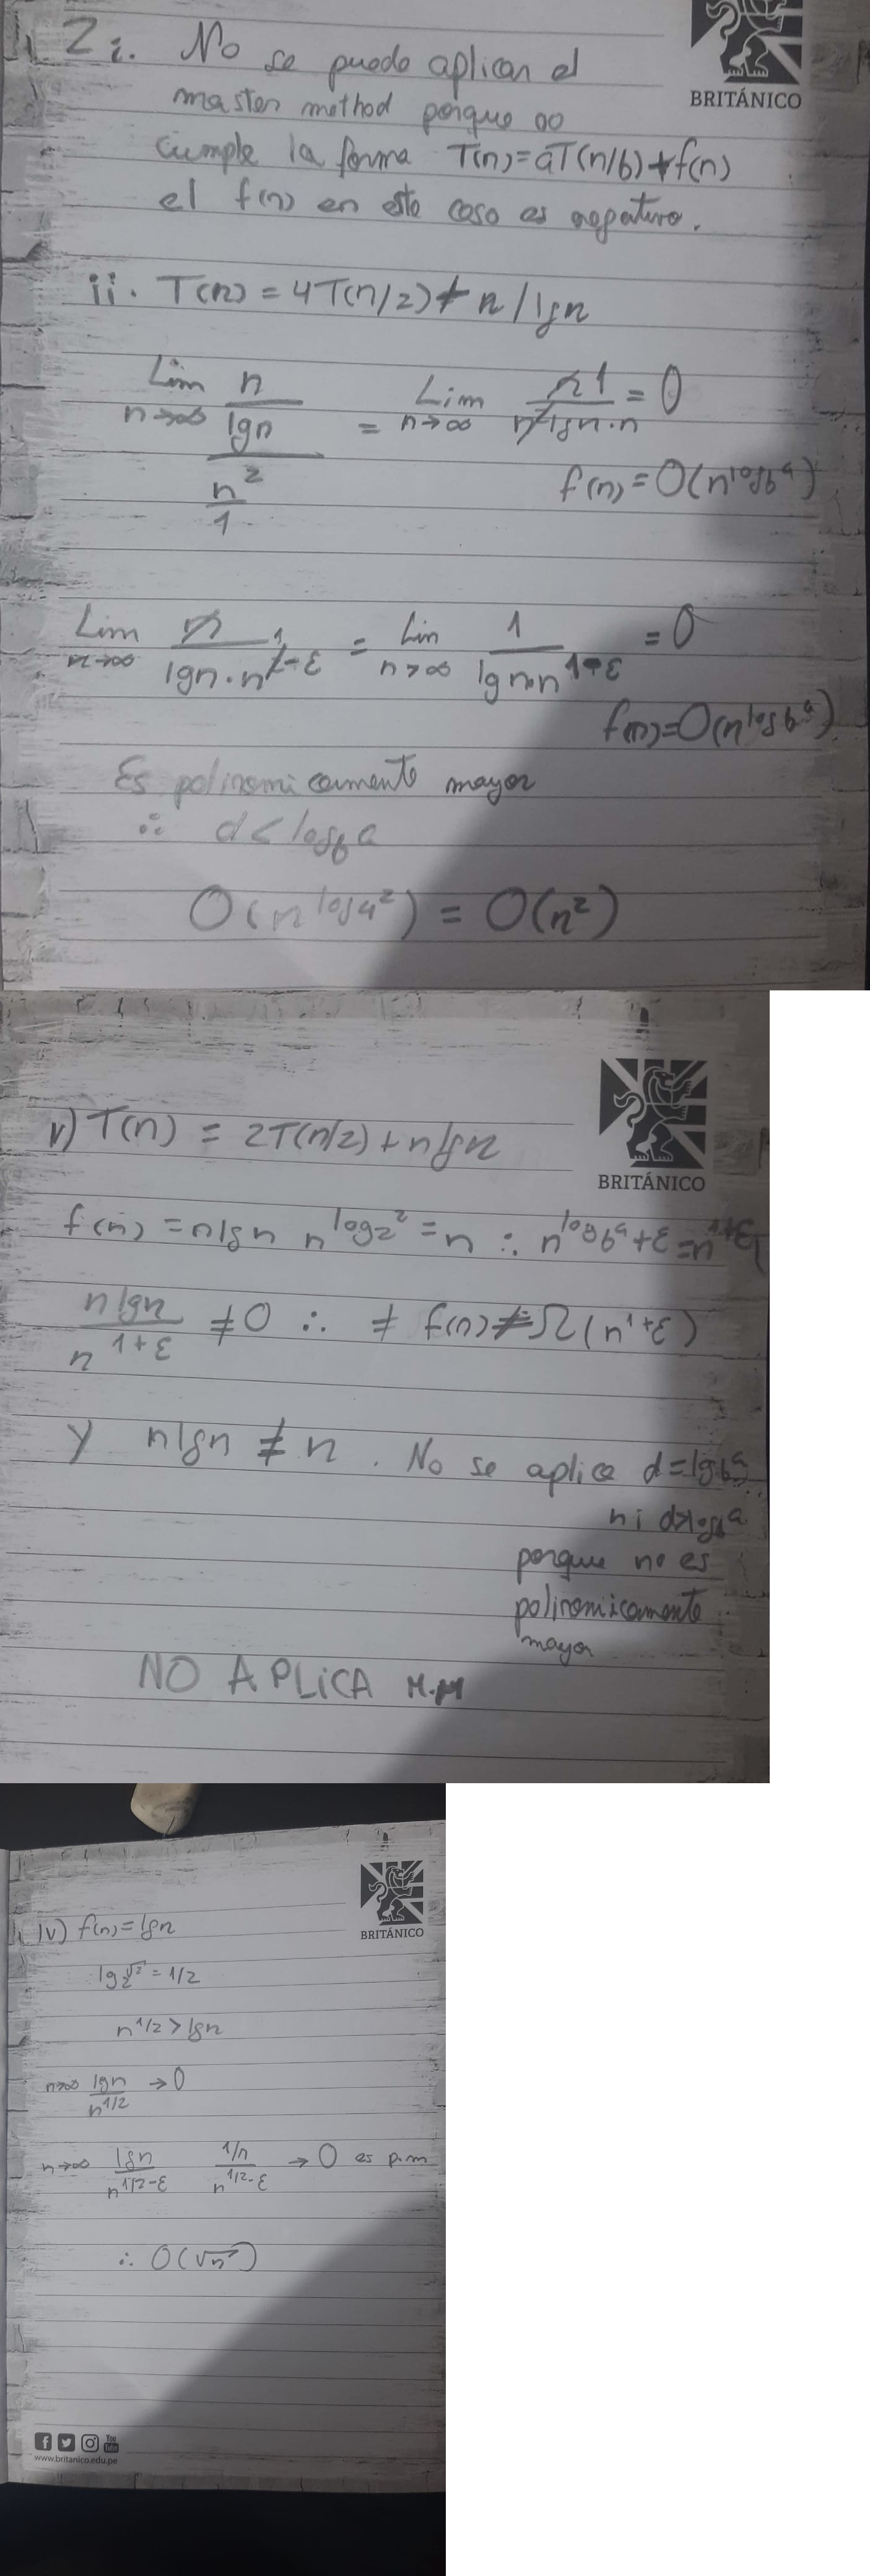 2 i. No se puede aplicar el
BRITÁNICO
master method porque no
cumple la forma T(n)=aT(n/b)+f(n)
el f(n) en este caso es negativo.
ii. T(n) = 4T(n/2)+ n/lgn
Lim n→∞ (n/lgn)/(n²/1) = Lim n→∞ n1/(n²lgn·n) = 0
f(n)=O(n^logb^a)
Lim n→∞ n/(lgn·n^2-ε) 1 = Lim n→∞ 1/(lgn·n^1-ε) = 0
f(n)=O(n^logb^a)
Es polinomicamente mayor
∴ d<logb a
O(n^log4²) = O(n²)
BRITÁNICO
v) T(n) = 2T(n/2)+nlgn
f(n) = nlgn n^log2² = n ∴ n^logb^a+ε = n^1+ε
nlgn/n^1+ε ≠ 0 ∴ ≠ f(n) ≠ Ω(n^1+ε)
y nlgn ≠ n. No se aplica d=lgb^a
ni d>logb^a
porque no es
polinomicamente
mayor
NO APLICA M.M
BRITÁNICO
iv) f(n)=lgn
lg2^√2 = 1/2
n^1/2 > lgn
n→∞ lgn/n^1/2 → 0
n→∞ lgn/n^1/2-ε (1/n)/n^1/2-ε → 0 es p.m
∴ O(√n)
You Tube
www.britanico.edu.pe